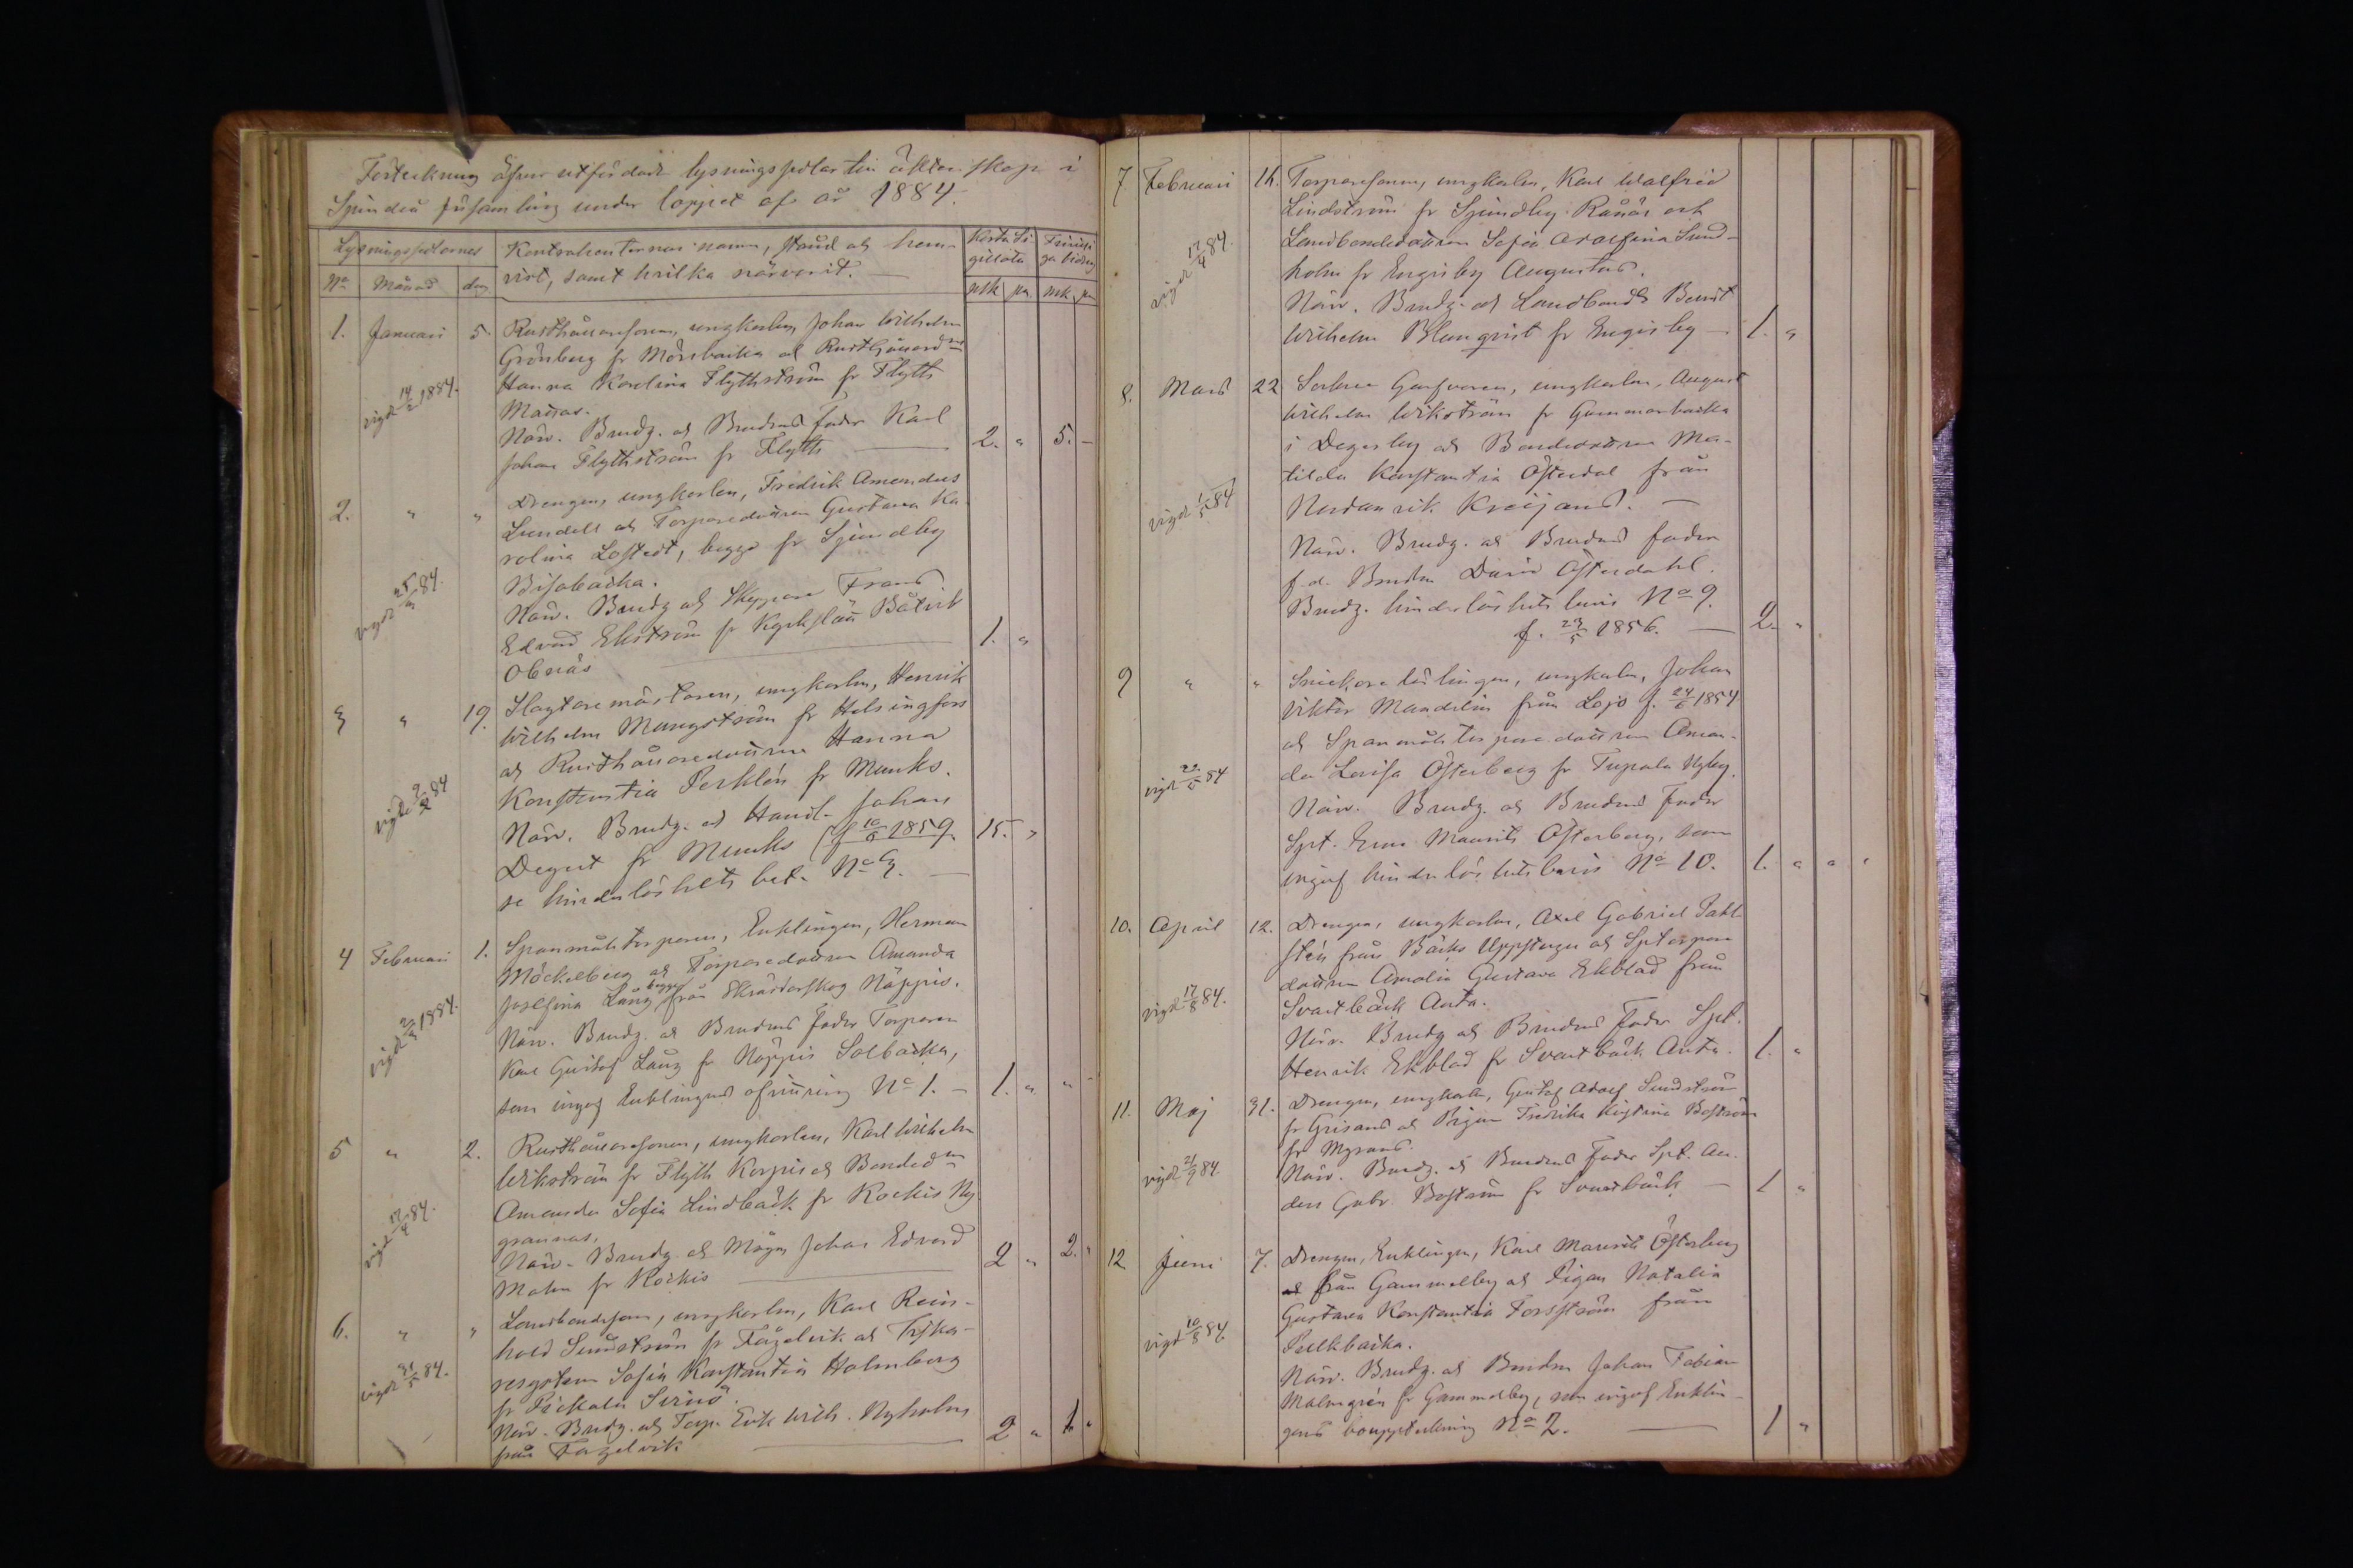 Förteckning öfver utfärdade lysningssedlar till äktenskap i
Sjundeå församling under loppet af år 1884.
Lysningssedlarnes
Kontrahenternas namn, stånd och hem-
vist, samt hvilka närvarit.
No Månad dag
mk pn mk pn
1. Januari 5. Rusthållaresonen, ungkarlen, Johan Wilhelm
Grönberg fr Mörsbacka och Rusthållared:n
Hanna Karolina Flythström fr Flyth
vigd 14/2 1884.
Närv. Brudg. och Brudens fader Karl
Johan Flythström fr Flyth 2. " 5. -
2. " " Drengen, ungkarlen, Fredrik Amandus
Lundell och Torparedottren Gustava Ka-
rolina Lostedt, begge fr Sjundby
Bisabacka.
vigd 84.
Närv. Brudg och Skeppare Frans
Edvard Ekström fr Kyrkslätt Båtvik
Obnäs 1. "
3 " 19. Slagtaremästaren, ungkarlen, Henrik
Wilhelm Mangström fr Helsingfors
och Rusthållaredottren Hanna
Konstantia Perklén fr Munks.
vigde 84
Närv. Brudg. och Handl. Johan
Degert fr Munks (f 10/6 1859. 15. "
se hinderlöshets bet. No 3.
4 Februari 1. Spanmålstorparen, Enklingen, Herman
Möckelberg och Torparedottren Amanda
Josefina Lång begge från Skräddarskog Näppis.
vigd 1884.
Närv. Brudg. och Brudens fader Torparen
Karl Gustaf Lång fr Näppis Solbacka,
som ingaf Enklingens afvittring No 1. - 1. " "
5 " 2. Rusthållaresonen, ungkarlen, Karl Wilhelm
Wikström fr Flyth Korpis och Bonded:n
Amanda Sofia Lindbäck fr Kockis Ny
grannas.
vigd 17/4 84.
Närv. Brudg. och Mågen Johan Edvard
Malm fr Kockis 2 " 2. "
6. " " Landbondeson, ungkarlen, Karl Rein-
hold Sundström fr Fågelvik och
Sofia Konstantia Holmberg
fr Pickala
vigd 31/5 84.
Närv. Brudg. och Torp. Erik Wilh. Nyholm
från Fågelvik 2 " 1. "
7. Februari 16. Torparesonen, ungkarlen, Karl Walfrid
Lindström fr Sjundby Rånäs och
Landbondedottren Sofia Adolfina Sund-
holm fr Engisby Augustas.
vigde 17/4 84.
Närv. Brudg. och Landbonde Bernt
Wilhelm Blomqvist fr Engisby - 1. "
8. Mars 22 ungkarlen, August
Wilhelm Wikström fr Gammanbacka
i Degerby och Bondedottren Ma-
tilda Konstantia Österdal från
Nordanvik Kreijans. -
vigd 1/5 84
Närv. Brudg. och Brudens fader
f.d. Bonden David Österdahl.
Brudg. hinderlöshets bevis No 9.
f. 23/5 1856. - 2. "
9 " " Snickare lärlingen, ungkarlen, Johan
Viktor Mandelin från Lojo f. 24/6 1854
och Spanmåls torparedottren Aman-
da Lovisa Österberg fr Tupala Nyby.
vigd 22/5 84
Närv. Brudg. och Brudens Fader
Spt. Mauritz Österberg, som
ingaf hinderlöshetsbevis No 10. 1. " " "
10. April 12. Drengen, ungkarlen, Axel Gabriel Dahl-
stén från Bäcks Uppstuga och Sptorpare
dottren Amalia Gustava Ekblad från
Svartbäck Anta.
vigd 17/8 84.
Närv. Brudg och Brudens Fader Spt.
Henrik Ekblad fr Svartbäck Anta. 1. "
11. Maj 31. Drengen, ungkarlen, Gustaf Adolf Sundström
fr Grisans och Pigan Fredrika Kristina Boström
fr Myrans.
vigd 21/9 84.
Närv. Brudg. och Brudens Fader Spt. An-
ders Gabr. Boström fr Svartbäck - 1 "
12 Juni 7. Drengen, Enklingen, Karl Mauritz Österberg
från Gammelby och Pigan Natalia
Gustava Konstantia Forsström från
Pellkbacka.
vigd 10/8 84.
Närv. Brudg. och Bonden Johan Fabian
Malmgrén fr Gammelby, som ingaf Enklin-
gens bouppteckning No 2. 1 "